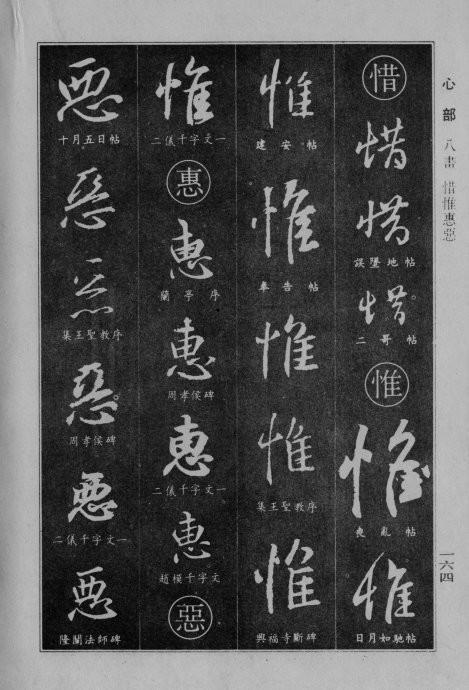 心部 八畫 惜惟惠惡
一六四
惜
惜
惜
誤墮地帖
惜
二哥帖
惟
惟
喪亂帖
惟
日月如馳帖
惟
建安帖
惟
奉告帖
惟
惟
集王聖教序
惟
興福寺斷碑
惟
二儀千字文一
惠
惠
蘭亭序
惠
周孝侯碑
惠
二儀千字文一
惠
趙模千字文
惡
惡
十月五日帖
惡
惡
集王聖教序
惡
周孝侯碑
惡
二儀千字文一
惡
隆闡法師碑